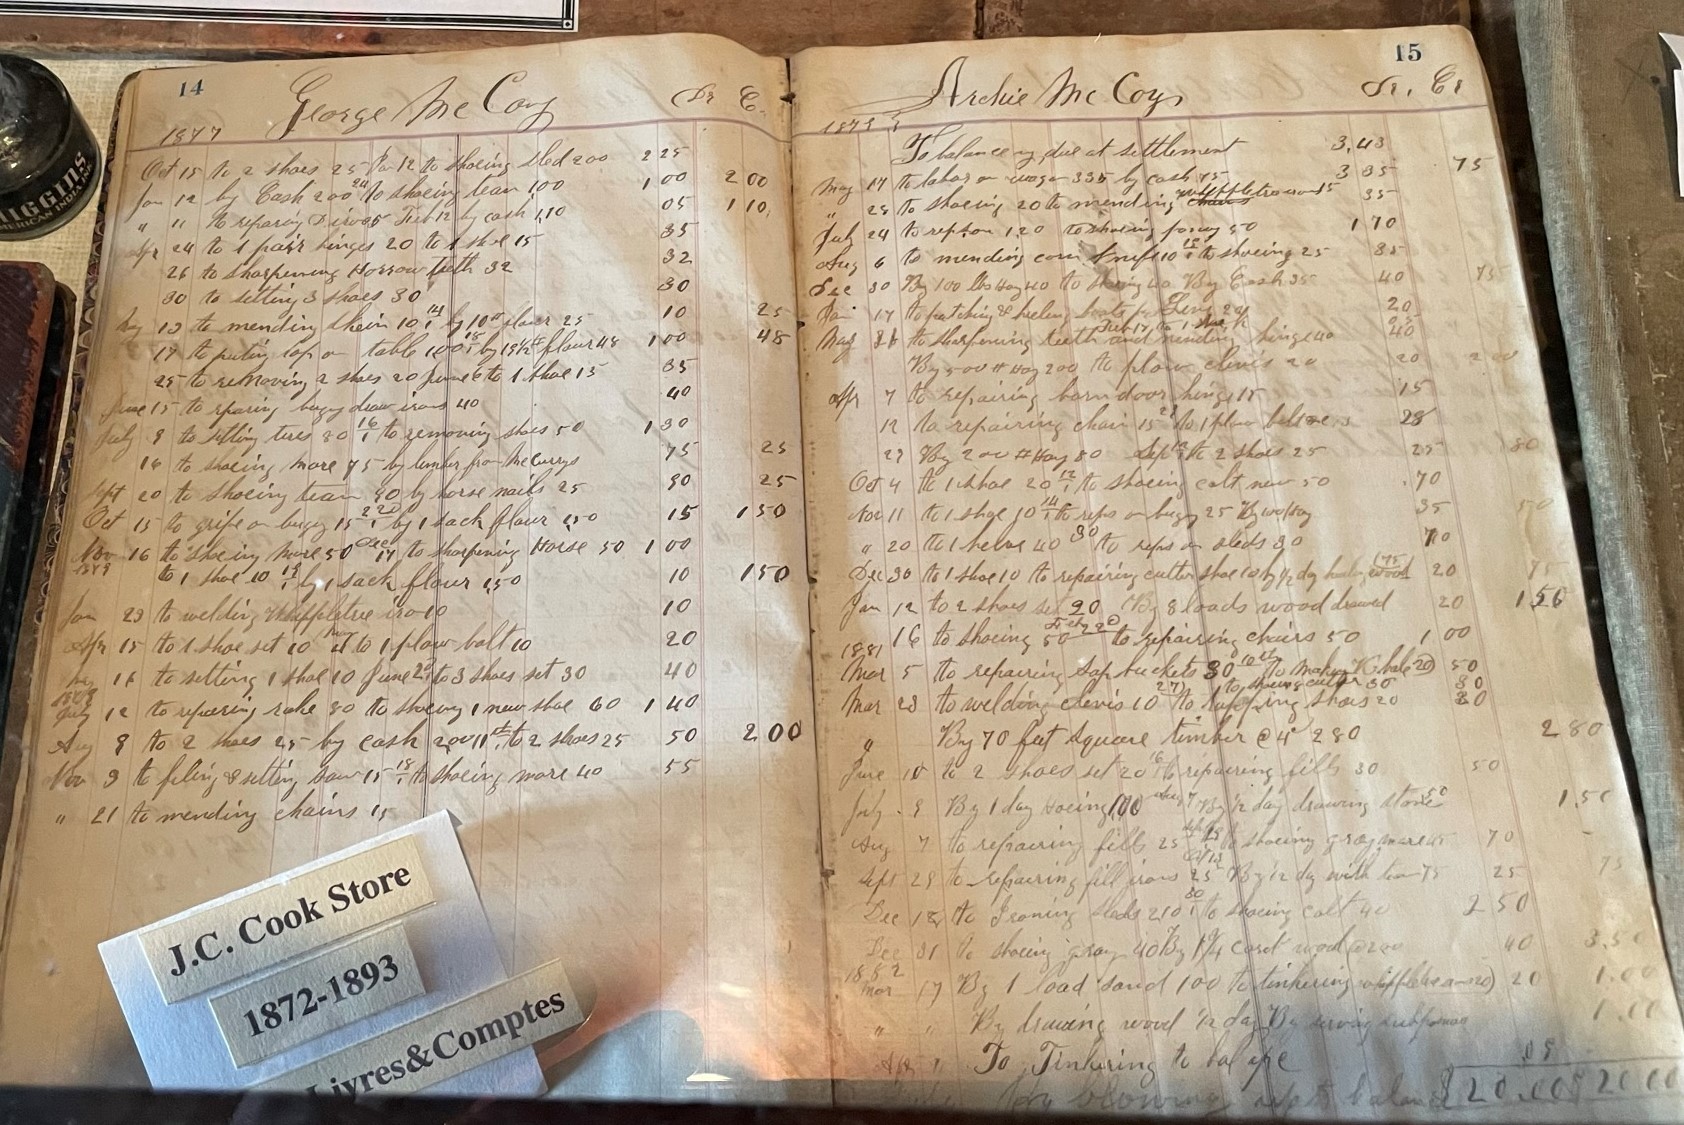 14
George McCoy Dr C.
1877
Oct 15 to 2 shoes 25 Jan 12 to shoeing sled 200 2 25
Jan 12 by Cash 200 to shoeing team 100 1 00 2 00
" 11 to reparing 5 Feb 12 by cash 1,10 05 1 10
Apr 24 to 1 pair hinges 20 to 1 shoe 15 35
26 to sharpening Horrow teeth 32 32
30 to setting 3 shoes 30 30
13 to mending 10 by 10 flour 25 10 25
17 to puting top on table 100 by 19½ # flour 48 1 00 48
25 to removing 2 shoes 20 June 6 to 1 shoe 15 35
June 15 to reparing bugy draw irons 40 40
July 9 to setting tires 80 16 to removing shoes 50 1 30
16 to shoeing mare 75 by lumber from McCurrys 75 25
Sept 20 to shoeing team 90 by horse nails 25 90 25
Oct 15 to on bugy 15 by 1 sack flour 1,50 15 1 50
Nov 16 to shoeing mare 50 Dec 17 to sharpening Horse 50 1 00
to 1 shoe 10 by 1 sack flour 1,50 10 1 50
Jan 23 to welding Whippletree iron 10 10
Apr 15 to 1 shoe set 10 to 1 plow bolt 10 20
16 to setting 1 shoe 10 June 2 to 3 shoes set 30 40
July 12 to repairing rake 80 to shoeing 1 new shoe 60 1 40
Aug 8 to 2 shoes 25 by cash 200 11th to 2 shoes 25 50 2 00
Nov 9 to filing & setting saw 15 18 to shoeing mare 40 55
" 21 to mending chains 15
15
Archie McCoy Dr. Cr
To balance due at settlement 3,43
May 17 to labor on wagon 335 by cash 75 3 35 75
" 25 to shoeing 20 to mending 15 35
July 24 to rep on 120 to shoeing poney 50 1 70
Aug 6 to mending corn knife 10 to shoeing 25 35
Dec 30 By 100 lbs Hay 40 to shoeing 40 By Cash 35 40 75
Jan 17 to patching & heeling boots for 20
May to sharpening teeth and mending hinge 40 40
By 500 # Hay 200 to plow clevis 20 20 2 00
Apr 7 to repairing barn door hinge 15 15
12 to repairing chain 15 to 1 plow 28
27 By 200 # Hay 80 Sept to 2 shoes 25 25 80
Oct 4 to 1 shoe 20 12 to shoeing colt new 50 70
Nov 11 to 1 shoe 10 14 to reps on bugy 25 35 50
" 20 to 1 40 30 to reps on sleds 30 70
Dec 30 to 1 shoe 10 to repairing cutter shoe 10 by ½ day wood 75 20 75
Jan 12 to 2 shoes set 20 By 8 loads wood drawed 20 1 50
16 to shoeing 50 to repairing chairs 50 1 00
1881
Mar 5 to repairing sap buckets 30 to 20 50
to shoeing cutter 30 80
Mar 23 to welding clevis 10 to shoes 20 30
" By 70 feet square timber @ 4 280 2 80
June 10 to 2 shoes set 20 to repairing fills 30 50
July 9 By 1 day Hoeing 100 Aug 7 By ½ day drawing stone 50 1.50
Aug 7 to repairing fills 25 to shoeing gray mare 45 70
Sept 28 to repairing fill irons 25 By ½ dy with team 75 25 75
Dec 12 to Ironing sleds 210 to shoeing colt 40 2 50
Dec 31 to shoeing gray 40 By 1¾ cord wood @ 200 40 3.50
1882
Mar 17 By 1 load sand 100 to tinkering 20 20 1.00
" " By drawing wood ½ day By 1.00
To Tinkering to .05
20.00 20 00
HIGGINS
AMERICAN INDIA INK
J.C. Cook Store
1872-1893
Livres&Comptes